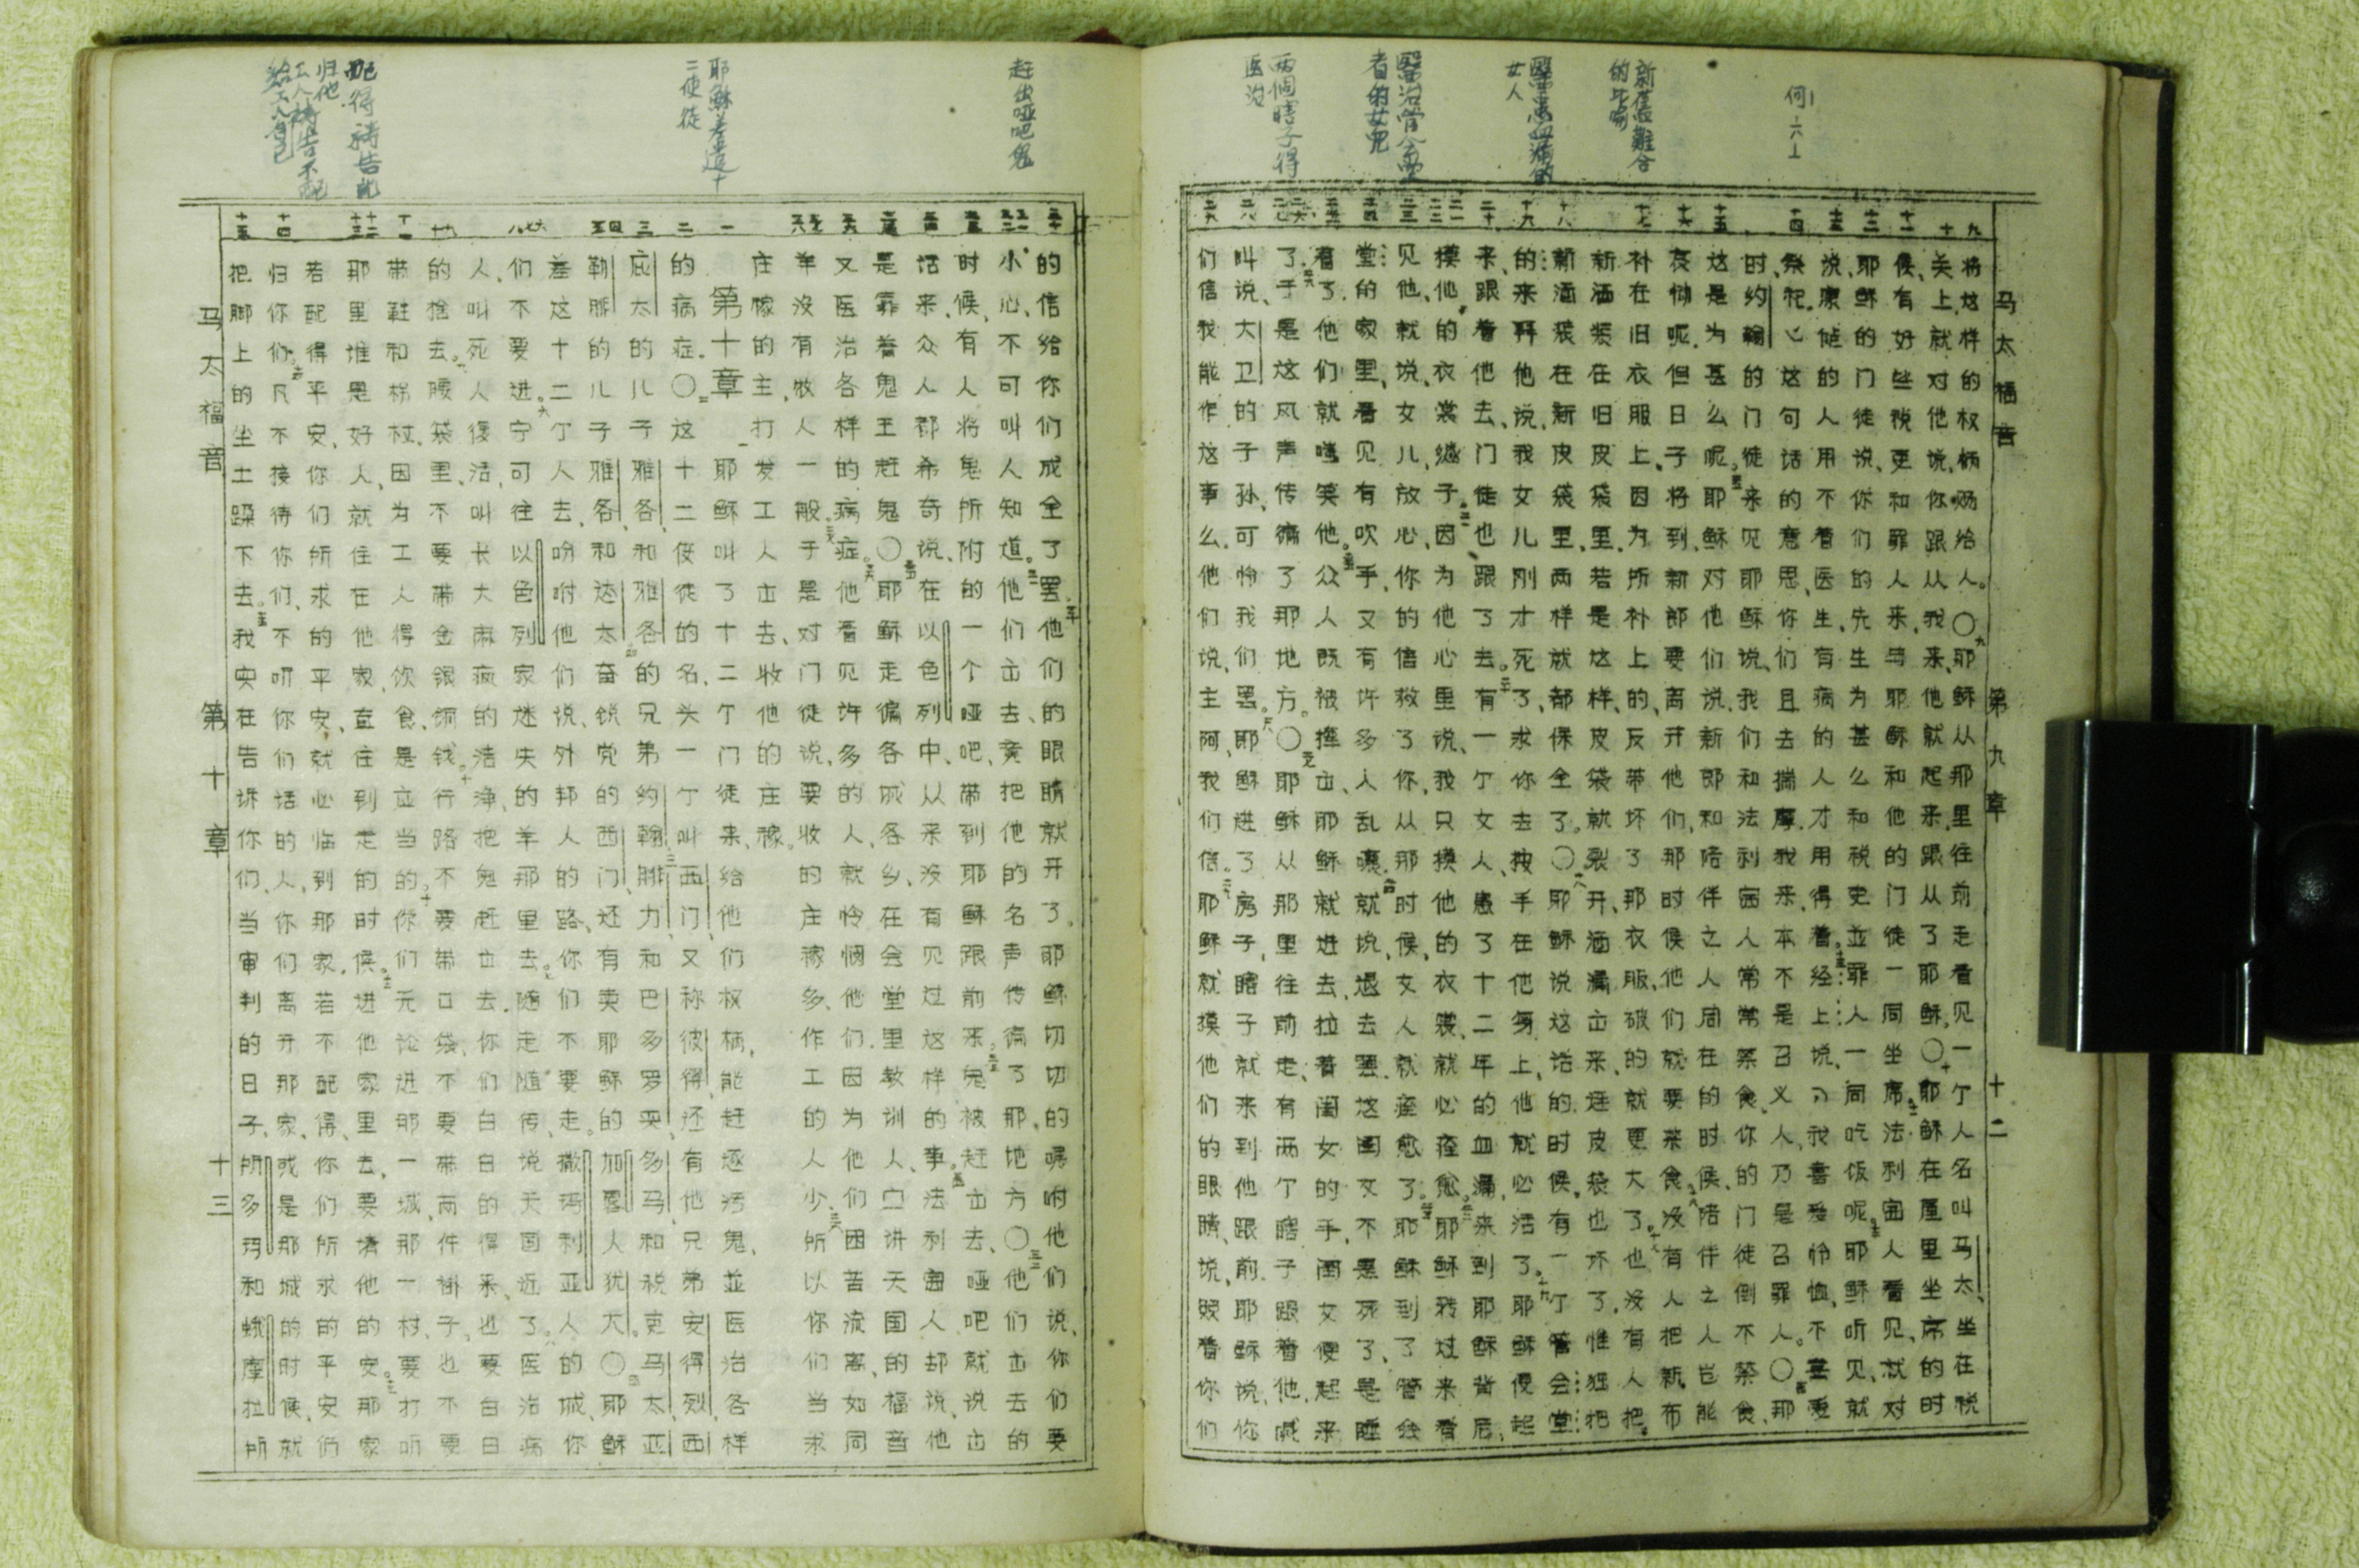 何一六上
新旧難合的比喻
醫患血漏的女人
醫治管会堂者的女兒
两個瞎子得医治
马太福音 第九章 十二
九 十 十一 十二 十三 十四 十五 十六 十七 十八 十九 二十 二一 二二 二三 二四 二五 二六 二七 二八 二九
将这样的权柄赐给人。○九耶稣从那里往前走看见一个人名叫马太、坐在税
关上、就对他说、你跟从我来、他就起来、跟从了耶稣。○十耶稣在屋里坐席的时
候、有好些税吏和罪人来、与耶稣和他的门徒一同坐席。十一法利赛人看见、就对
耶稣的门徒说、你们的先生为甚么和税吏並罪人一同吃饭呢。十二耶稣听见、就
说、康健的人用不着医生、有病的人才用得着。十三经上说、我喜爱怜恤、不喜爱
祭祀、这句话的意思、你们且去揣摩、我来本不是召义人、乃是召罪人。○十四那
时、约翰的门徒来见耶稣说、我们和法利赛人常常禁食、你的门徒倒不禁食、
这是为甚么呢。十五耶稣对他们说、新郎和陪伴之人同在的时候、陪伴之人岂能
哀恸呢、但日子将到、新郎要离开他们、那时候他们就要禁食。十六没有人把新布
补在旧衣服上、因为所补上的、反带坏了那衣服、破的就更大了。十七也没有人把
新酒装在旧皮袋里、若是这样、皮袋就裂开、酒漏出来、连皮袋也坏了、惟独把
新酒装在新皮袋里、两样就都保全了。○十八耶稣说这话的时候、有一个管会堂
的、来拜他说、我女儿刚才死了、求你去按手在他身上、他就必活了。十九耶稣便起
来、跟着他去、门徒也跟了去。二十有一个女人患了十二年的血漏、来到耶稣背后、
摸他的衣裳繸子。二一因为他心里说、我只摸他的衣裳、就必痊愈。二二耶稣转过来看
见他、就说、女儿、放心、你的信救了你、从那时候、女人就痊愈了。二三耶稣到了管会
堂的家里、看见有吹手、又有许多人乱嚷、二四就说、退去罢、这闺女不是死了、是睡
着了。他们就嗤笑他。二五众人既被撵出、耶稣就进去、拉着闺女的手、闺女便起来
了。二六于是这风声传徧了那地方。○二七耶稣从那里往前走、有两个瞎子跟着他、喊
叫说、大卫的子孙、可怜我们罢。二八耶稣进了房子、瞎子就来到他跟前、耶稣说、你
们信我能作这事么、他们说、主阿、我们信。二九耶稣就摸他们的眼睛、说、照着你们
赶出哑吧鬼
耶稣差遣十二使徒
配得祷告就归他
工人祷告不配
给工人自己
三十 三一 三二 三三 三四 三五 三六 三七 三八 一 二 三 四 五 六 七 八 九 十 十一 十二 十三 十四 十五
的信给你们成全了罢。三十他们的眼睛就开了。耶稣切切的嘱咐他们说、你们要
小心、不可叫人知道。三一他们出去、竟把他的名声传徧了那地方○三二他们出去的
时候、有人将鬼所附的一个哑吧、带到耶稣跟前来。三三鬼被赶出去、哑吧就说出
话来、众人都希奇说、在以色列中、从来没有见过这样的事。三四法利赛人却说、他
是靠着鬼王赶鬼○三五耶稣走徧各城各乡、在会堂里教训人、宣讲天国的福音
又医治各样的病症。三六他看见许多的人、就怜悯他们、因为他们困苦流离、如同
羊没有牧人一般。三七于是对门徒说、要收的庄稼多、作工的人少、三八所以你们当求
庄稼的主、打发工人出去、收他的庄稼。
第十章 一耶稣叫了十二个门徒来、给他们权柄、能赶逐污鬼、並医治各样
的病症。○二这十二使徒的名、头一个叫西门、又称彼得、还有他兄弟安得烈、西
庇太的儿子雅各、和雅各的兄弟约翰、三腓力、和巴多罗买、多马、和税吏马太、亚
勒腓的儿子雅各、和达太、四奋锐党的西门、还有卖耶稣的加略人犹大。○五耶稣
差这十二个人去、吩咐他们说、外邦人的路、你们不要走。撒玛利亚人的城、你
们不要进。六宁可往以色列家迷失的羊那里去。七随走随传、说天国近了。八医治病
人、叫死人复活、叫长大麻疯的洁净、把鬼赶出去、你们白白的得来、也要白白
的捨去。九腰袋里、不要带金银铜钱。十行路不要带口袋、不要带两件褂子、也不要
带鞋和柺杖、因为工人得饮食、是应当的。十一你们无论进那一城、那一村、要打听
那里谁是好人、就住在他家、直住到走的时候。十二进他家里去、要请他的平安。十三那家
若配得平安、你们所求的平安、就必临到那家、若不配得、你们所求的平安仍就
归你们。十四凡不接待你们、不听你们话的人、你们离开那家、或是那城的时候、就
把脚上的尘土跺下去。十五我实在告诉你们、当审判的日子、所多玛和蛾摩拉所
马太福音 第十章 十三